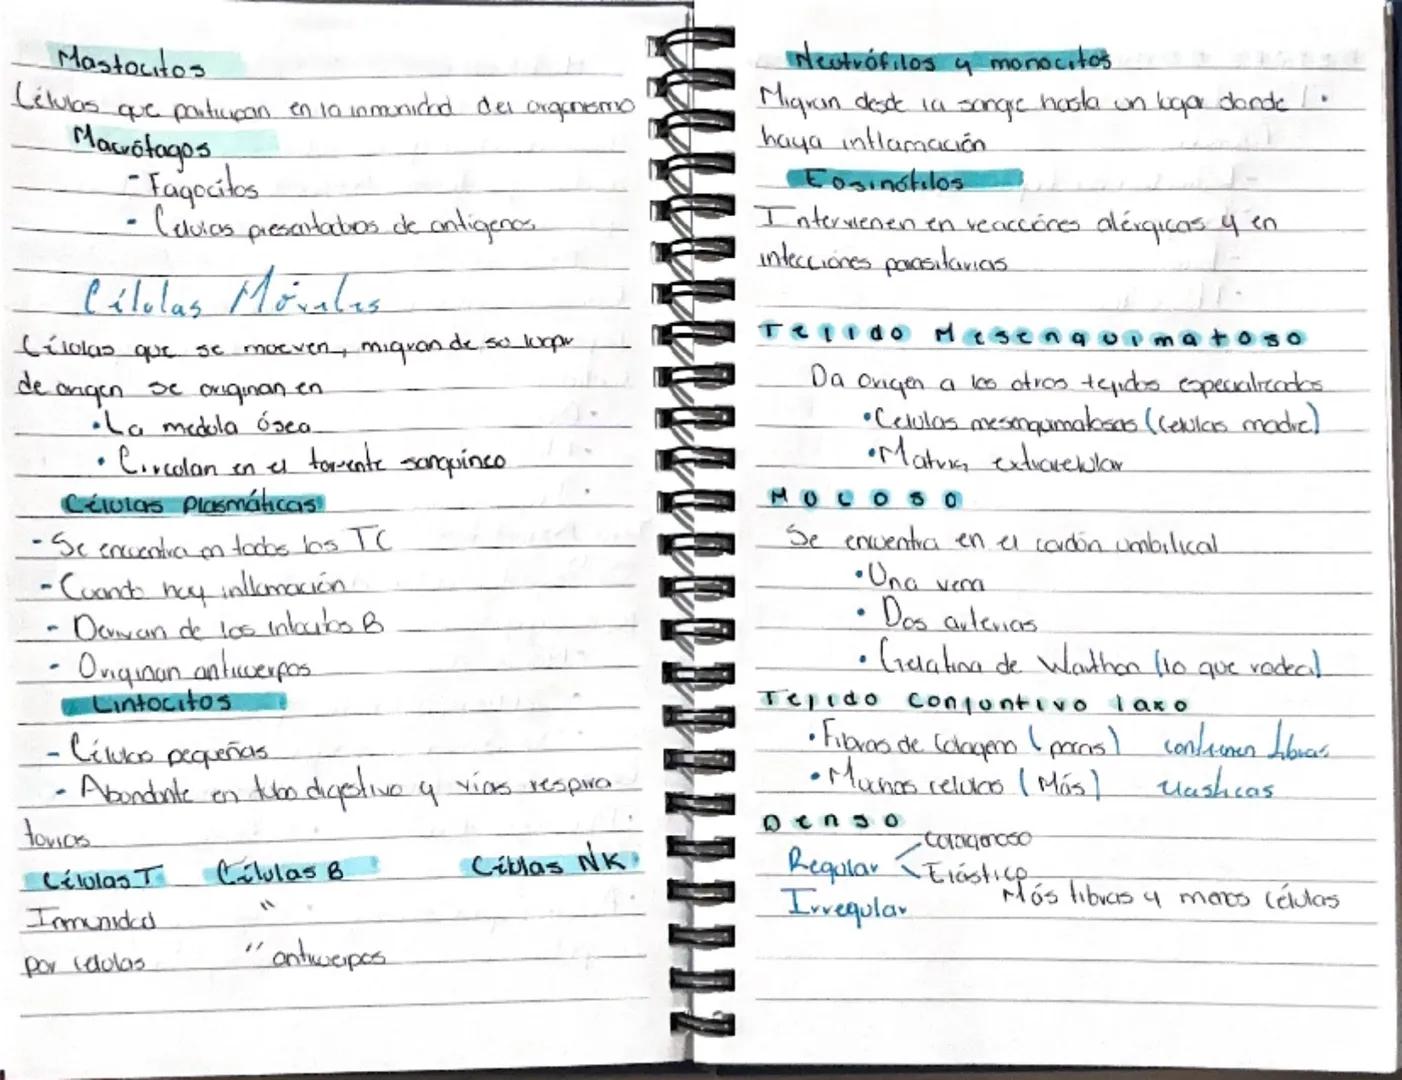 Mastocitos
Células que participan en la inmunidad del organismo
Macrófagos
- Fagocitos
- Celulas presentadoras de antigenos
Células Móviles
Células que se mueven, migran de su lugar
de origen se originan en
• La medula ósea
• Circulan en el torrente sanguineo
Células Plasmáticas
- Se encuentra en todos los TC
- Cuando hay inflamación
- Derivan de los linfocitos B
- Originan anticuerpos
Linfocitos
- Células pequeñas
- Abundante en tubo digestivo y vías respira
torias
Células T Células B Células NK
Inmunidad "
por celulas " anticuerpos
Neutrófilos y monocitos
Migran desde la sangre hasta un lugar donde
haya inflamación
Eosinófilos
Intervienen en reacciónes alérgicas y en
infecciónes parasitarias
Tejido Mesenquimatoso
Da origen a los otros tejidos especializados
• Celulas mesenquimatosas (celulas madre)
• Matriz extracelular
Mucoso
Se encuentra en el cordón umbilical
• Una vena
• Dos arterias
• Gelatina de Warthon (lo que rodea)
Tejido Conjuntivo laxo
• Fibras de Colageno (pocas) contienen fibras
• Muchas celulas (Más) elasticas
Denso
Colagenoso
Regular Elástico
Irregular Más fibras y menos células